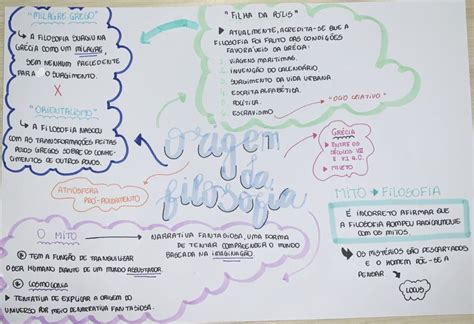 "MILAGRE GREGO"
↳ A FILOSOFIA SURGIU NA
GRÉCIA COMO UM MILAGRE,
SEM NENHUM PRECEDENTE
PARA O SURGIMENTO.
X
"ORIENTALISMO"
↳ A FILOSOFIA NASCEU
COM AS TRANSFORMAÇÕES FEITAS
PELOS GREGOS SOBRE OS CONHE-
CIMENTOS DE OUTROS POVOS.
"FILHA DA PÓLIS"
ATUALMENTE, ACREDITA-SE QUE A
FILOSOFIA FOI FRUTO DAS CONDIÇÕES
FAVORÁVEIS DA GRÉCIA:
1. VIAGENS MARÍTIMAS.
2. INVENÇÃO DO CALENDÁRIO
3. SURGIMENTO DA VIDA URBANA
4. ESCRITA ALFABÉTICA.
5. POLÍTICA.
6. ESCRAVISMO → "ÓCIO CRIATIVO"
origem
da
filosofia
GRÉCIA
ENTRE OS
SÉCULOS VII
E VI A.C.
MILETO
ATMOSFERA
PRÓ-PENSAMENTO
MITO → FILOSOFIA
É INCORRETO AFIRMAR QUE
A FILOSOFIA ROMPEU RADICALMENTE
COM OS MITOS.
↳ OS MISTÉRIOS SÃO DESCARTADOS
E O HOMEM PÕE-SE A
PENSAR
LOGOS
O MITO → NARRATIVA FANTASIOSA, UMA FORMA
DE TENTAR COMPREENDER O MUNDO
BASEADA NA IMAGINAÇÃO.
TEM A FUNÇÃO DE TRANQUILIZAR
O SER HUMANO DIANTE DE UM MUNDO ASSUSTADOR.
COSMOGONIA
TENTATIVA DE EXPLICAR A ORIGEM DO
UNIVERSO POR MEIO DE NARRATIVA FANTASIOSA.